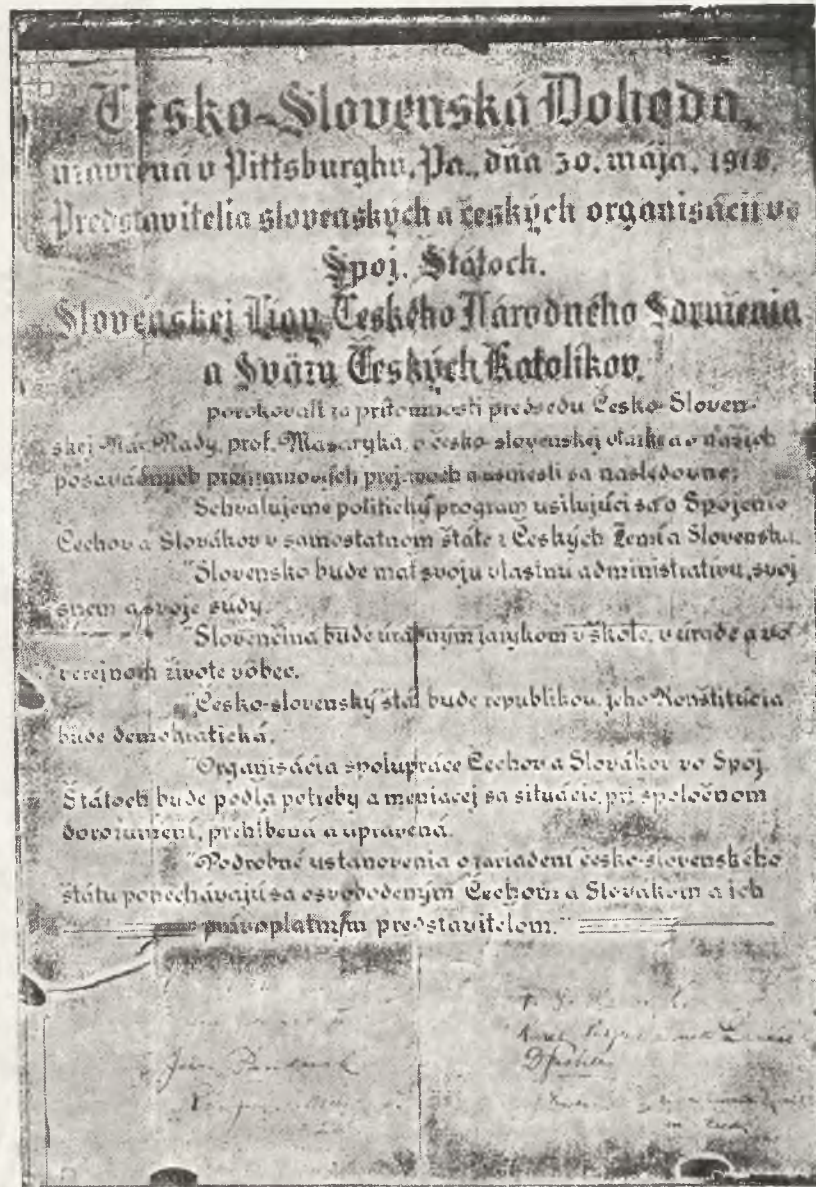 Česko-Slovenská Dohoda,
uzavrená v Pittsburghu, Pa., dňa 30. mája, 1918.
Predstavitelia slovenských a českých organisácií vo
Spoj. Štátoch.
Slovenskej Ligy, Českého Národného Sdruženia
a Sväzu Českých Katolíkov,
porokovali za prítomnosti predsedu Česko-Sloven-
skej Nár. Rady, prof. Masaryka, o česko-slovenskej otázke a o našich
posavádnych programmových prejavoch a usniesli sa nasledovne:
"Schvaľujeme politický program usilujúci sa o Spojenie
Čechov a Slovákov v samostatnom štáte z Českých Zemí a Slovenska.
"Slovensko bude mať svoju vlastnú administratívu, svoj
snem a svoje súdy.
"Slovenčina bude úradným jazykom v škole, v úrade a vo
verejnom živote vôbec.
"Česko-slovenský štát bude republikou, jeho Konštitúcia
bude demokratická.
"Organisácia spolupráce Čechov a Slovákov vo Spoj.
Štátoch bude podľa potreby a meniacej sa situácie, pri spoločnom
dorozumení, prehĺbená a upravená.
"Podrobné ustanovenia o zariadení česko-slovenského
štátu ponechávajú sa osvobodeným Čechom a Slovákom a ich
právoplatným predstaviteľom."